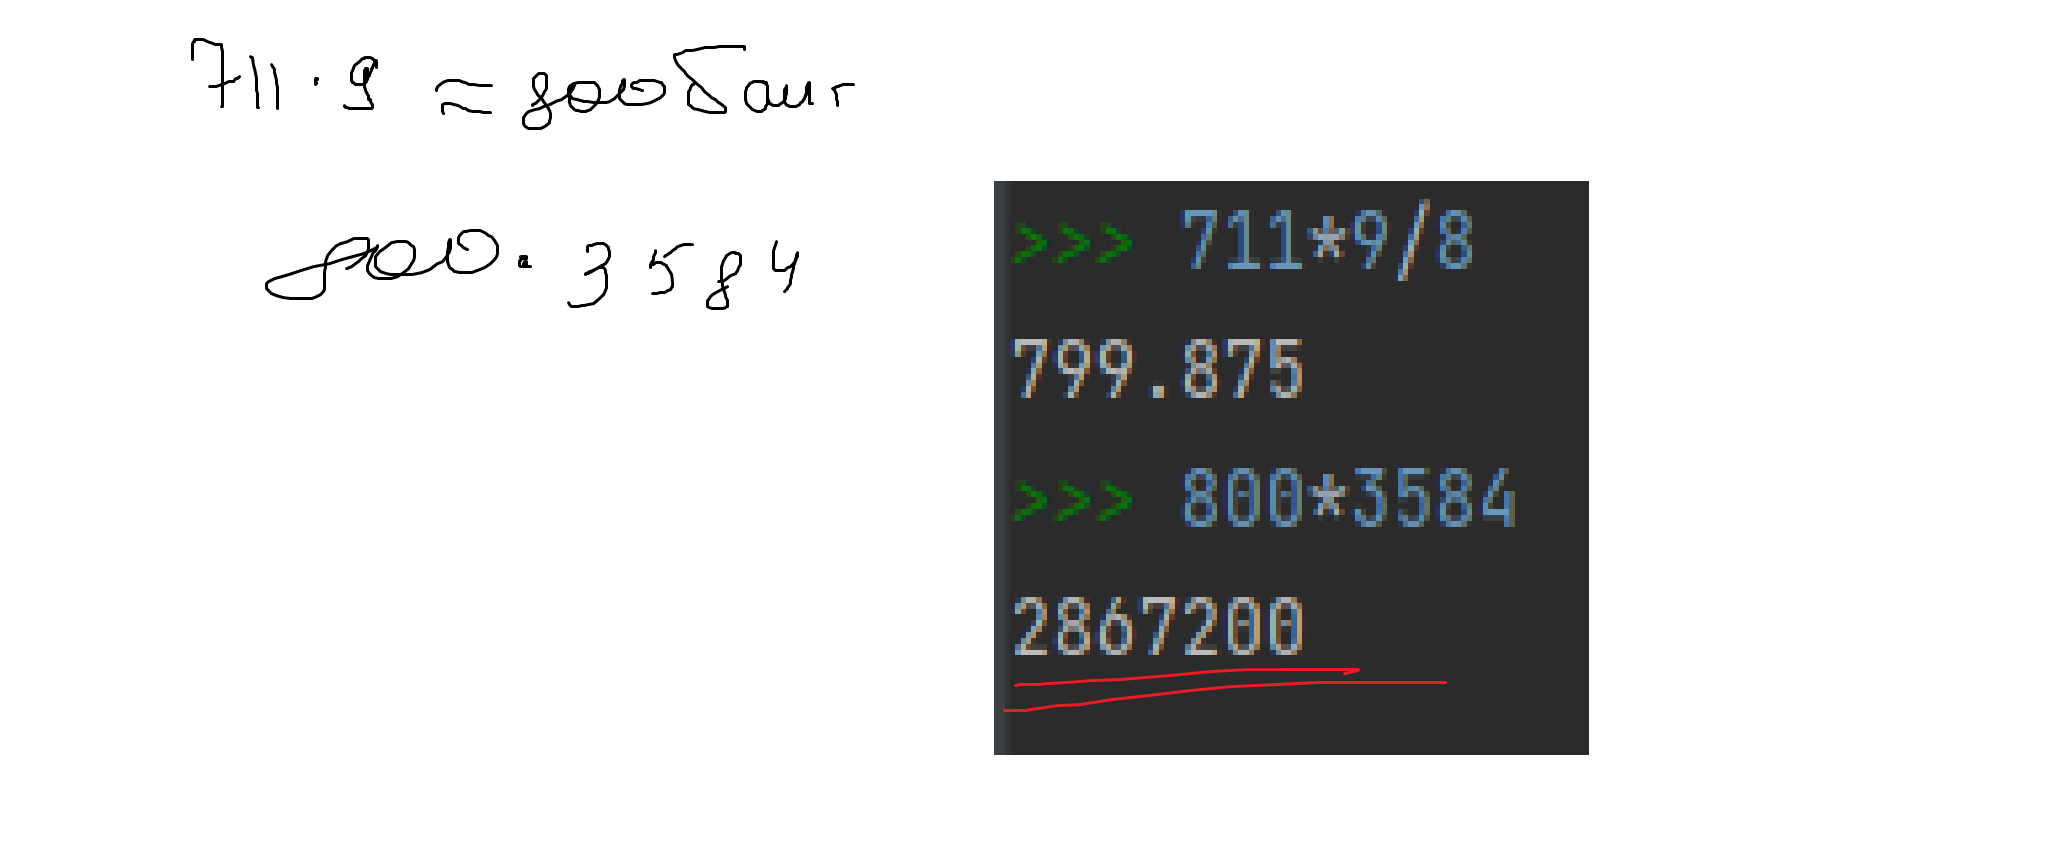 711 · 9 ≈ 800 байт
800 · 3584
>>> 711*9/8
799.875
>>> 800*3584
2867200